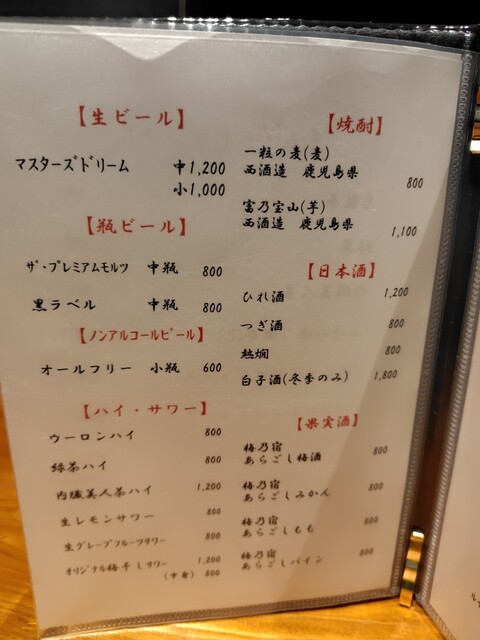 【生ビール】
マスターズドリーム 中1,200
小1,000
【瓶ビール】
ザ・プレミアムモルツ 中瓶 800
黒ラベル 中瓶 800
【ノンアルコールビール】
オールフリー 小瓶 600
【ハイ・サワー】
ウーロンハイ 800
緑茶ハイ 800
内臓美人茶ハイ 1,200
生レモンサワー 800
生グレープフルーツサワー 800
オリジナル梅干しサワー 1,200
(中身) 800
【焼酎】
一粒の麦(麦)
西酒造 鹿児島県 800
富乃宝山(芋)
西酒造 鹿児島県 1,100
【日本酒】
ひれ酒 1,200
つぎ酒 800
熱燗 800
白子酒(冬季のみ) 1,800
【果実酒】
梅乃宿
あらごし梅酒 800
梅乃宿
あらごしみかん 800
梅乃宿
あらごしもも 800
梅乃宿
あらごしパイン 800